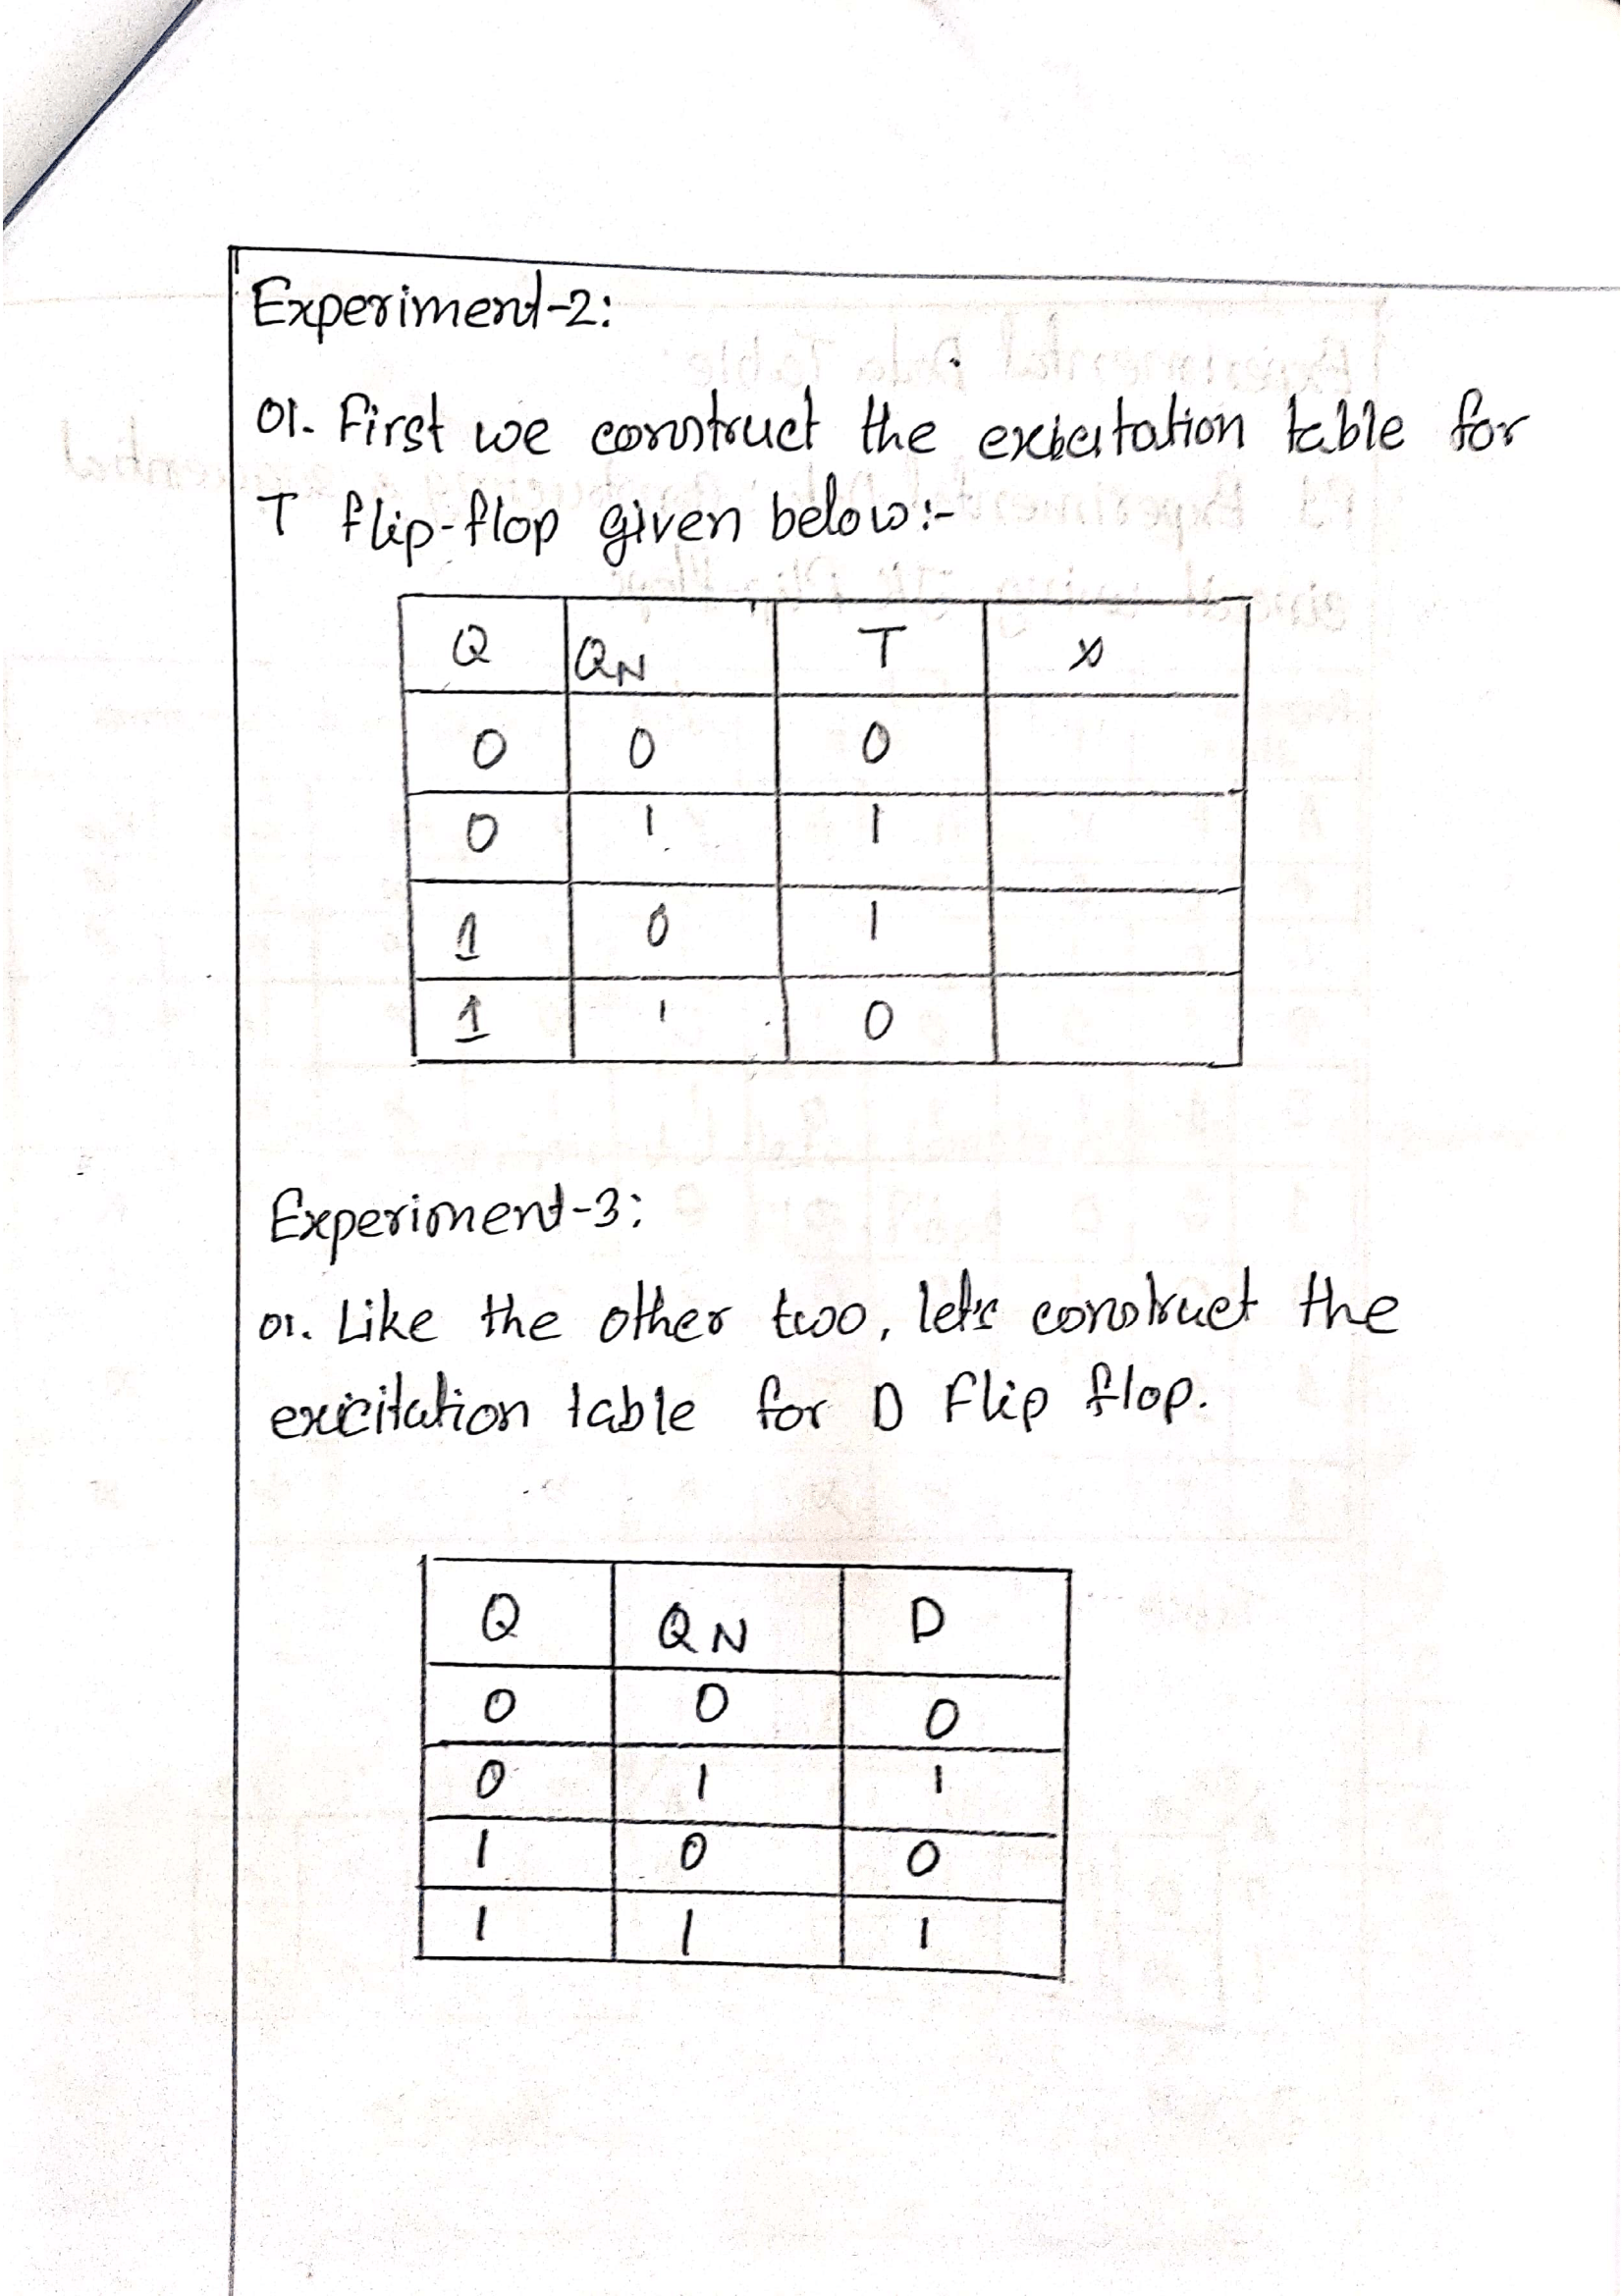 Experiment-2:
01. First we construct the excitation table for
T flip-flop given below:-
Q QN T X
0 0 0
0 1 1
1 0 1
1 1 0
Experiment-3:
01. Like the other two, let's construct the
exicitation table for D Flip flop.
Q QN D
0 0 0
0 1 1
1 0 0
1 1 1